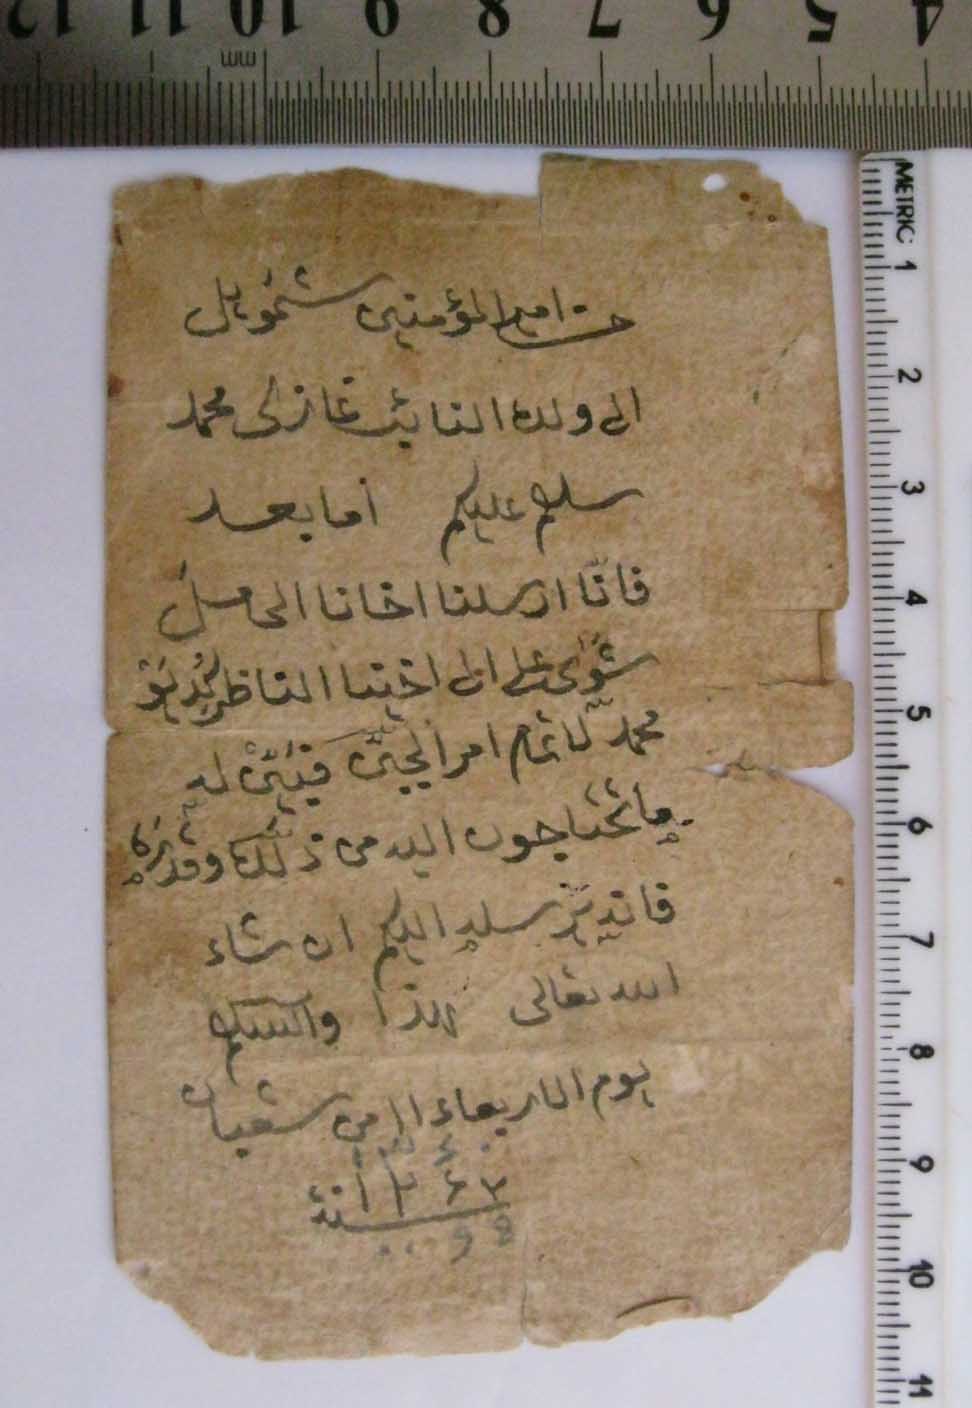 12 11 10 9 8 7 6 5 4
mm
METRIC
1
2
3
4
5
6
7
8
9
10
11
من امير المؤمنين شمويل
الى ولده النائب غازى محمد
سلام عليكم أما بعد
فانّا ارسلنا اخانا الحامل
على الى اخينا الناظر
محمد لاتمام امر فبيّن له
ما تحتاجون اليه من ذلك وقدره
فانه اليكم ان شاء
الله تعالى هذا والسلام
يوم الاربعاء ١١ من شعبان
سنة